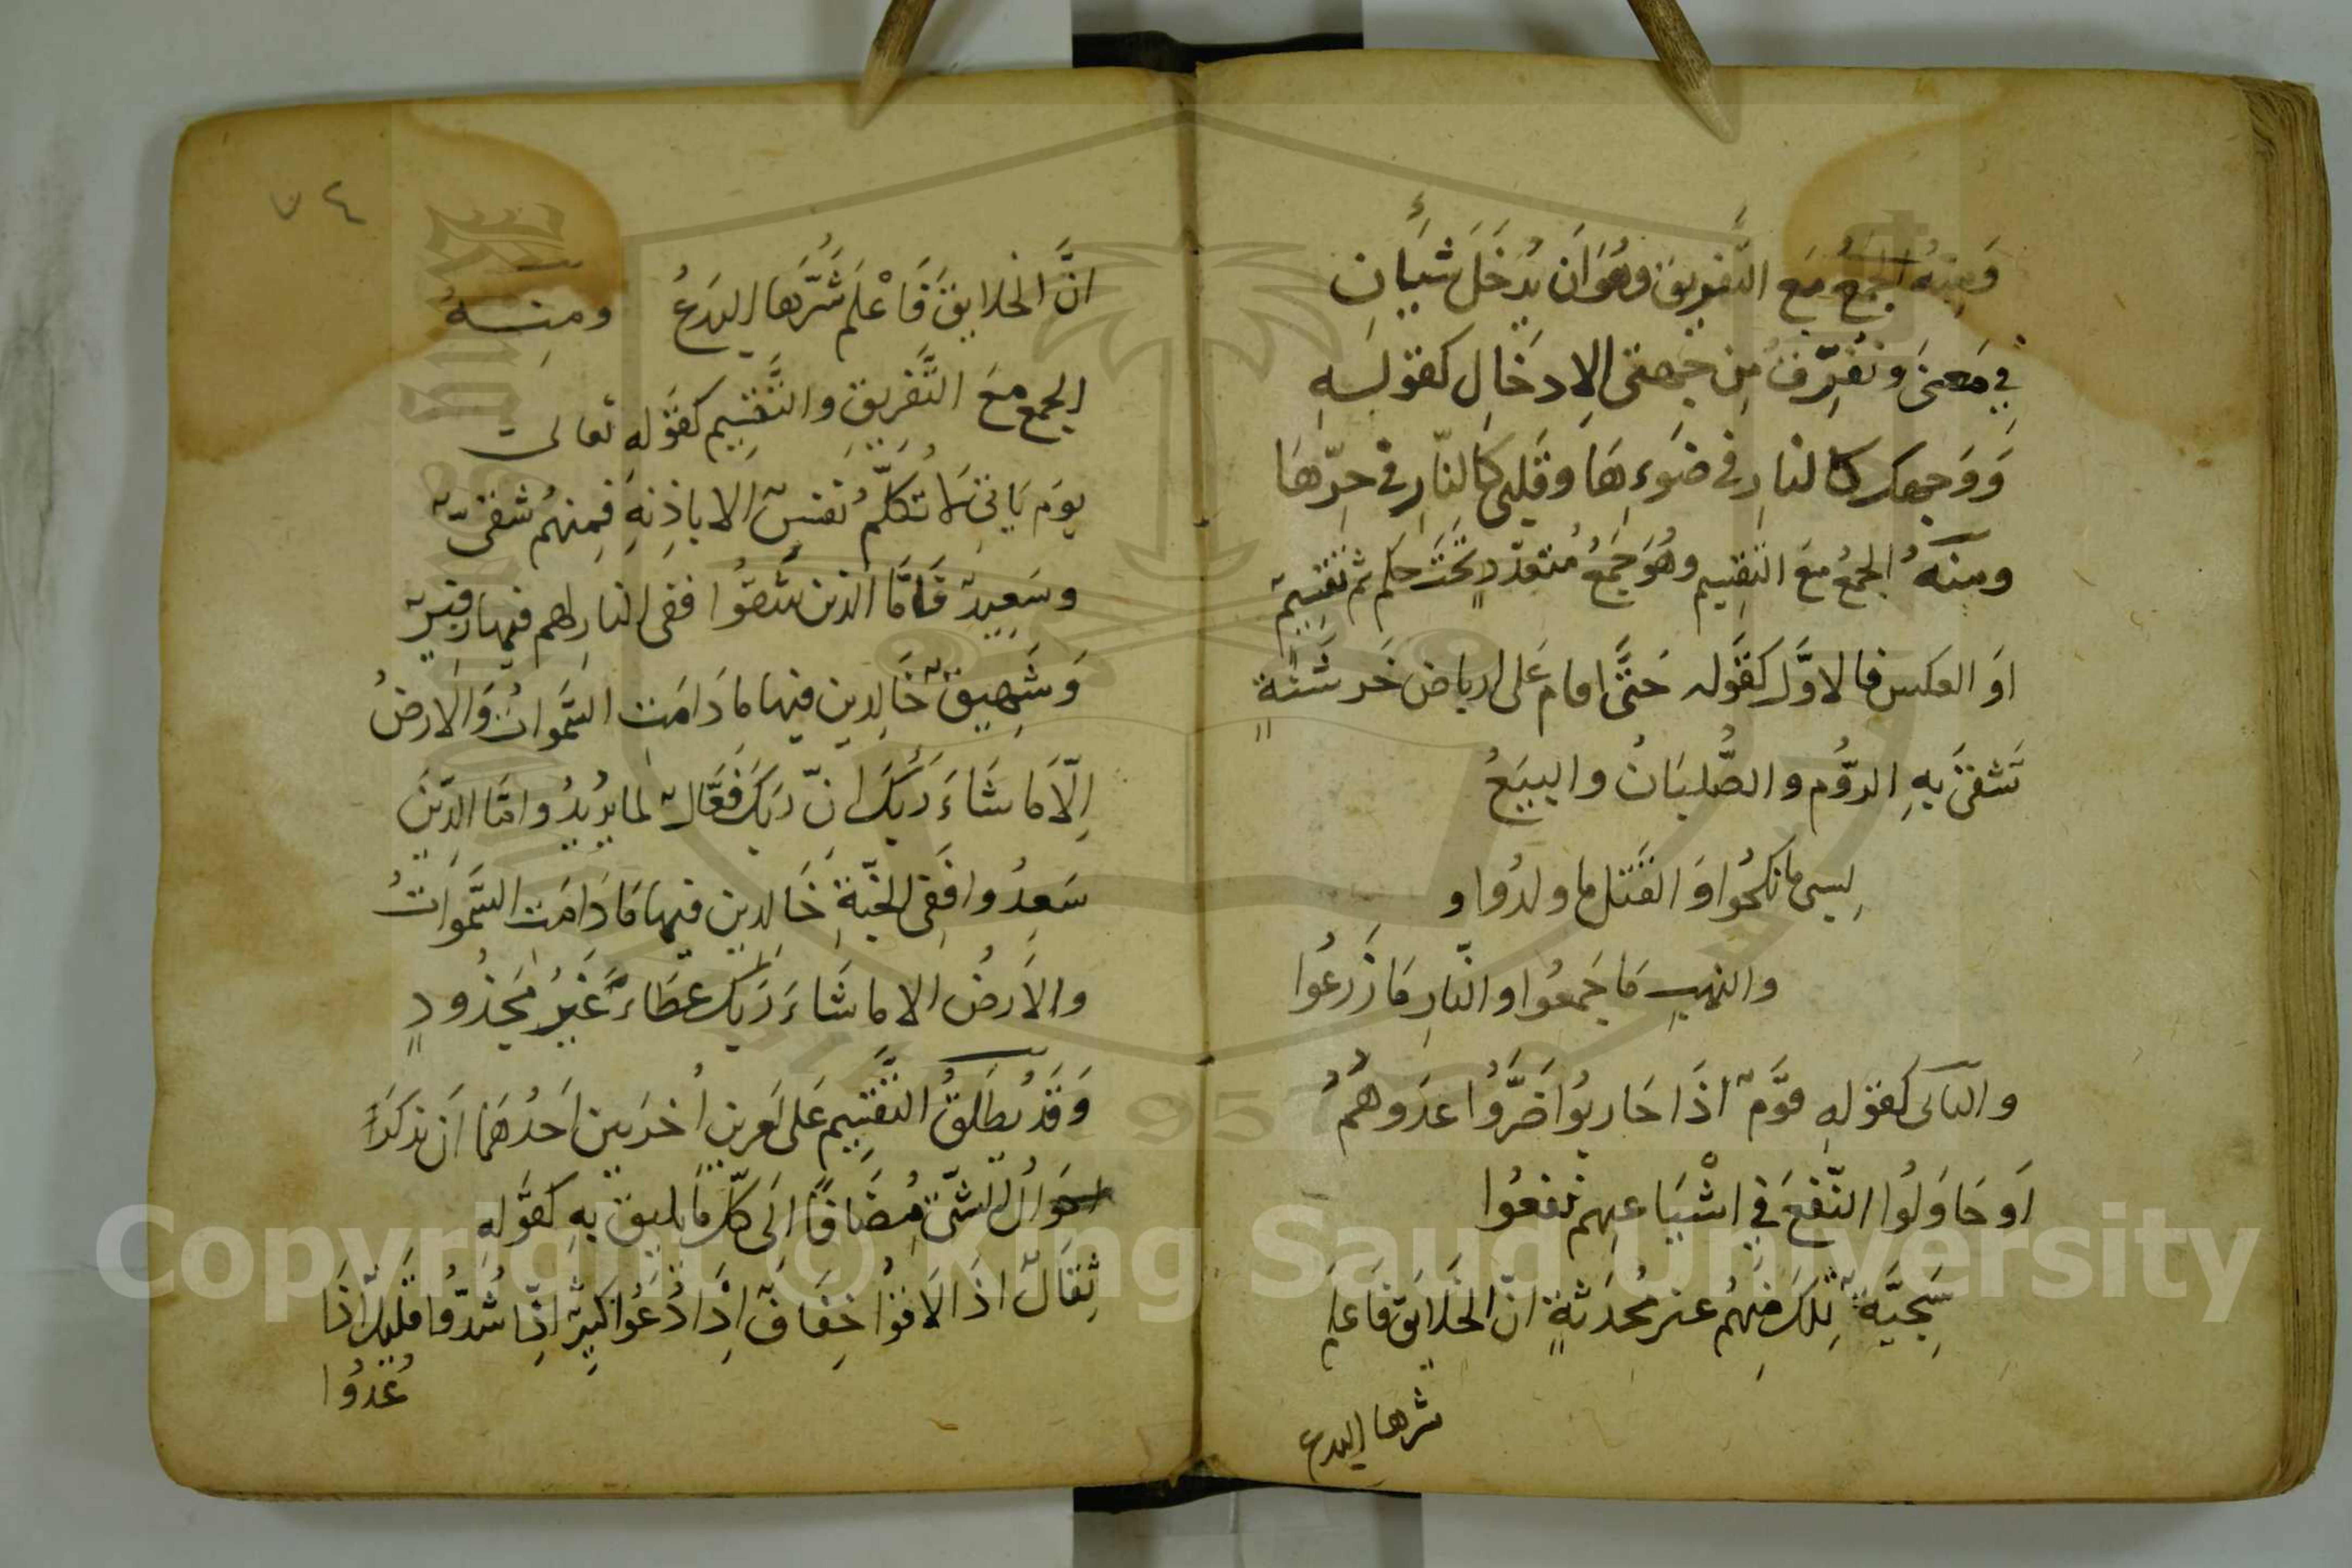 وَمِنهُ الجمعُ مَعَ التَّفريق وهُوَ اَن يُدخَلَ شَيأَانِ
فِي مَعنىً ونُفرِّقُ مِن جِهتى الاِدخَال كقولِهِ
وَوَجهك كالنارِ في ضَوءِهَا وقَلبى كَالنّارِ في حرِّهَا
ومنهُ الجمعُ مَعَ التَّقسِيم وهُوَ جَمعُ مُتعدّدٍ تَحتَ حكم ثم تقسِيمٌ
اَو العكس فالاوَّل كقَوله حَتَّى اقام عَلى ارباض خَرشَنةٍ
تَشقىَ بِهِ الروُّم والصُّلبَانُ والبيَعُ
لِسبى ما نكحُوا وَالقَتل ما ولدُوا و
والنهبِ مَا جَمعُوا والنَّارِ مَا زَرعُوا
والثانى كقولهِ قَومٌ اذَا حَاربُوا ضَرَّوُا عدَوهمُ
اَو حَاوَلُوا النَّفعَ فِي اشْيَاعِهِم نفعُوا
سَجِيَّةٌ تِلكَ مِنهُم غير مُحدَثةٍ انّ الخَلايقَ فَاعلم
شرها البدع
٧٤
انَّ الخلايقَ فَاعْلم شَرُّهَا البدَعُ ومنهُ
الجمع مَعَ التَّفريقِ والتَّقسيم كقَولهِ تعالى
يوَم يَاتِى لاَ تكَلَّمُ نفسٌ الا باِذنِهِ فمِنهُم شَقىٌّ
وسَعِيدٌ فَامَّا الذين شقوُا ففى النارِ لهم فيها زفيرٌ
وَشَهِيقٌ خَالِدين فيها ما دَامَت السَّمواتُ وَالارضُ
اِلّا مَا شَاءَ رَبُّكَ اِنّ ربَكَ فَعَّالٌ لما يريُدُ وامَّا الذِّينَ
سَعِدُوا فَفِى الجَنّةِ خَالدين فيها مَا دَامَت السَّموَاتُ
والاَرضُ الا ما شَاءَ رَبُّكَ عطَاءً غَيرُ مَجذُودٍ
وَقَد يُطلَقُ التَّقسِيم عَلى اَمرين اُخرَيين اَحدُهمَا اَن تذكَرَ
احوَالُ الشئ مُضَافًا اِلَى كلّ مَا يليق بهِ كقَولهِ
ثِقَالٌ اذَا لاقوُا خِفَافٌ اِذَا دُعُوا كثِيرٌ اذِا شُدّوُا قَلِيلٌ اذَا
عُدوُّا